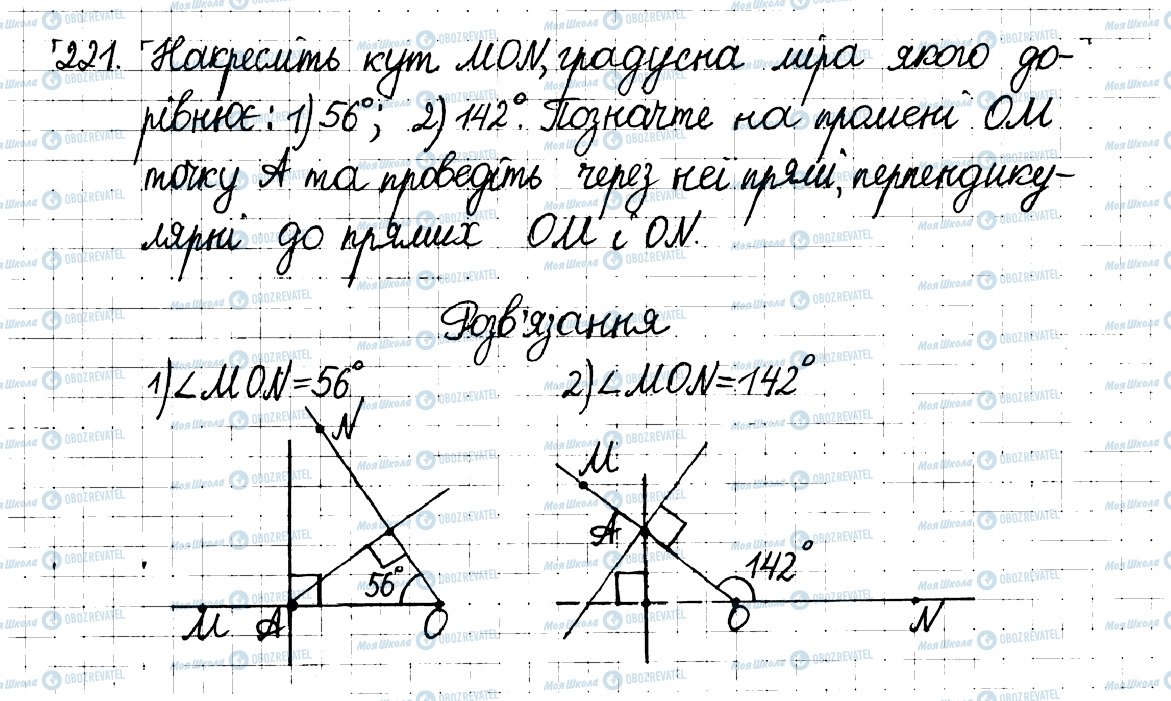 221. Накресліть кут MON, градусна міра якого до-
рівнює: 1) 56°; 2) 142°. Позначте на промені OM
точку A та проведіть через неї прямі, перпендику-
лярні до прямих OM і ON.
Розв'язання
1) ∠MON=56°
2) ∠MON=142°
N
56°
M A O
M
A
142°
O N
МояШкола OBOZREVATEL